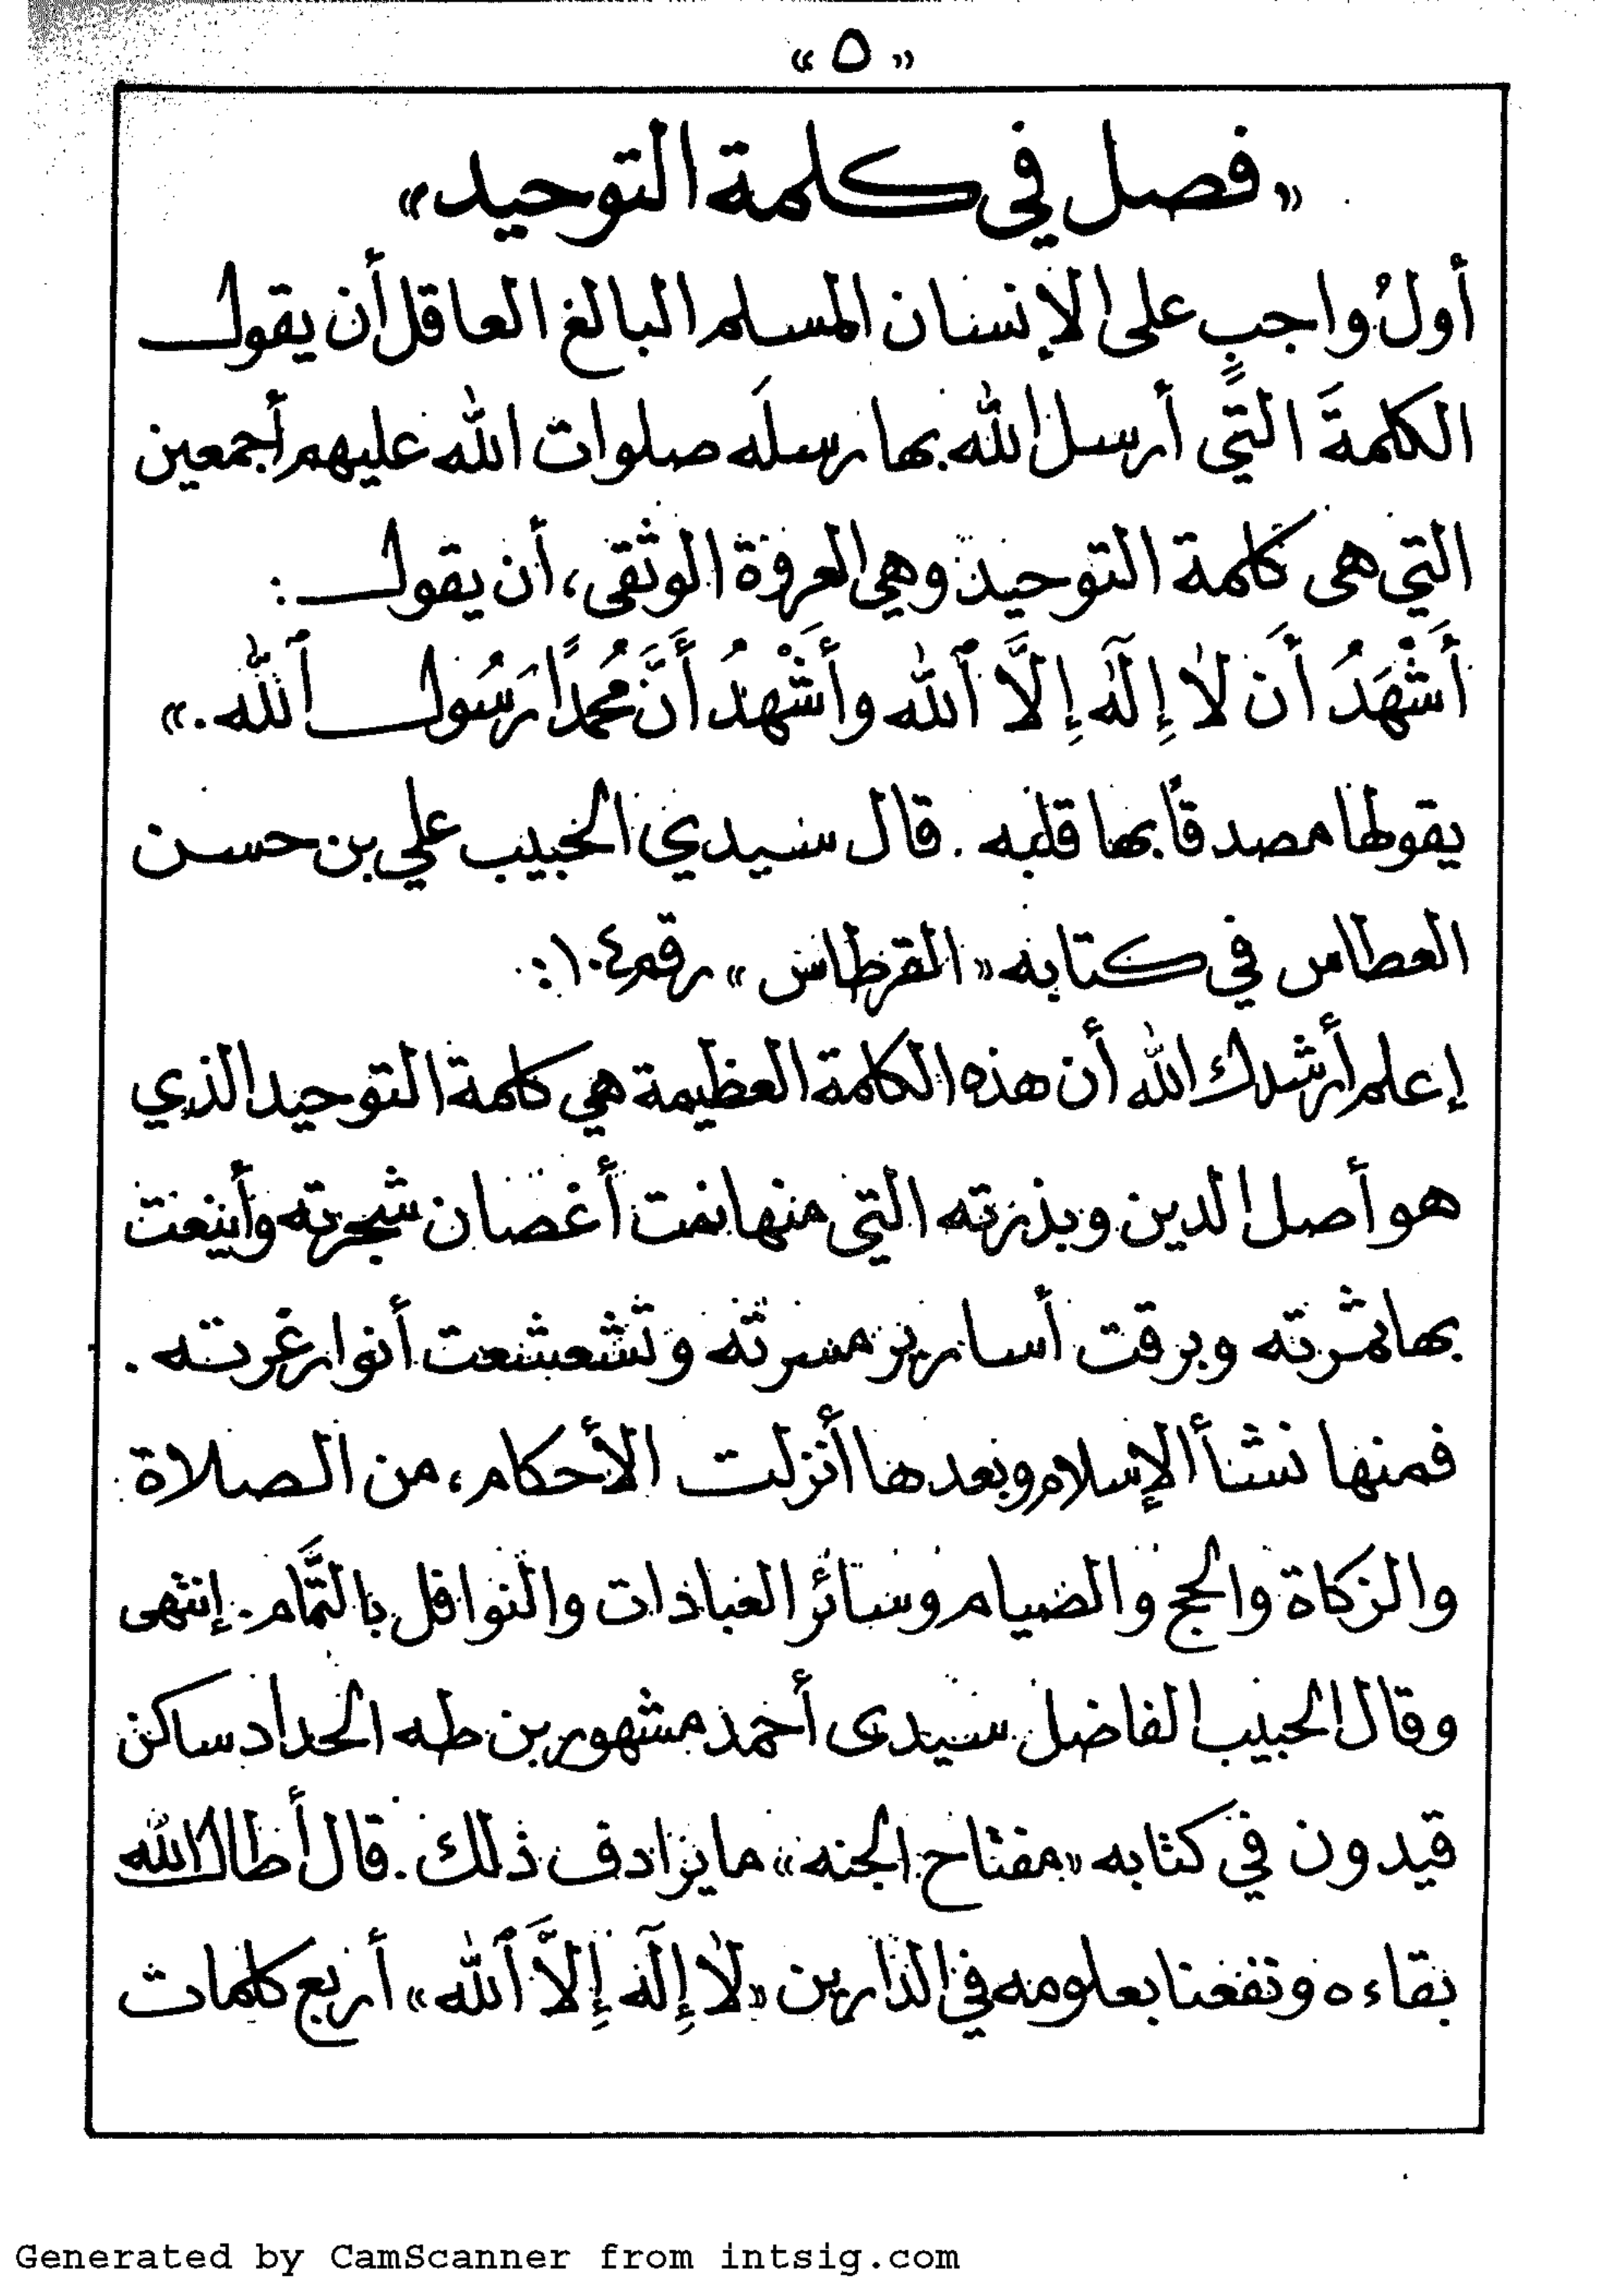 « ٥ »
« فصل في كلمة التوحيد »
أولُ واجبٍ على الإنسان المسلم البالغ العاقل أن يقول
الكلمةَ التي أرسل الله بها رسلَه صلوات الله عليهم أجمعين
التي هى كلمة التوحيد وهي العروة الوثقى، أن يقول :
أَشْهَدُ أَن لاَ إِلَٰهَ إِلاَّ ٱلله وأَشْهدُ أَنَّ مُحمدًا رَسُول ٱلله . »
يقولها مصدقًا بها قلبه . قال سيدي الحبيب علي بن حسن
العطاس في كتابه « القرطاس » رقم ١٠٤ :
إعلم أرشدك الله أن هذه الكلمة العظيمة هي كلمة التوحيد الذي
هو أصل الدين وبذرته التي منها نمت أغصان شجرته وأينعت
بها ثمرته وبرقت أسارير مسرته وتشعشعت أنوار غرته .
فمنها نشأ الإسلام وبعدها أنزلت الأحكام، من الصلاة
والزكاة والحج والصيام وسائر العبادات والنوافل بالتَّمام . إنتهى
وقال الحبيب الفاضل سيدى أحمد مشهور بن طه الحداد ساكن
قيدون في كتابه « مفتاح الجنه » ما يرادف ذلك . قال أطال الله
بقاءه ونفعنا بعلومه في الدارين « لاَ إِلَٰه إِلاَّ ٱلله » أربع كلمات
Generated by CamScanner from intsig.com